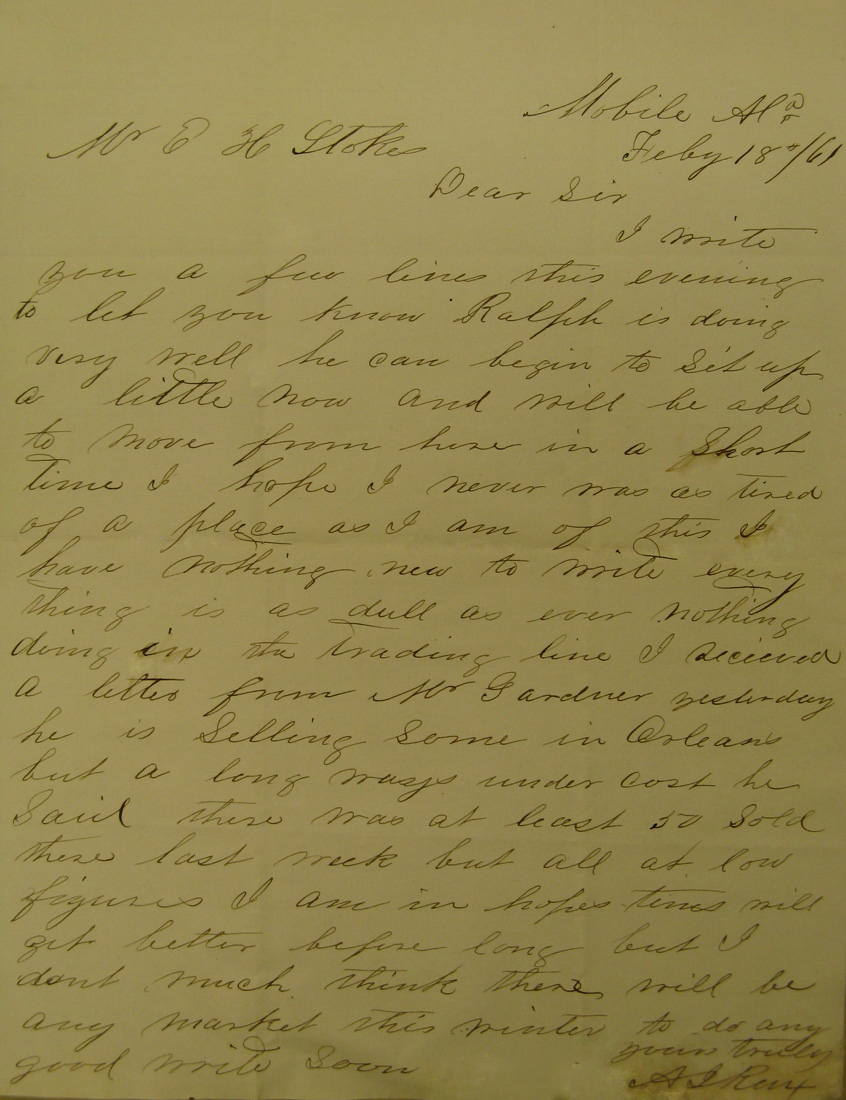 Mobile Ala
Mr E H Stokes Feby 18th/61
Dear Sir
I write
you a few lines this evening
to let you know Ralph is doing
very well he can begin to set up
a little now and will be able
to move from here in a short
time I hope I never was as tired
of a place as I am of this I
have nothing new to write every
thing is as dull as ever nothing
doing in the trading line I recieved
a letter from Mr Gardner yesterday
he is Selling Some in Orleans
but a long ways under cost he
Said there was at least 50 Sold
there last week but all at low
figures I am in hopes times will
get better before long but I
dont much think there will be
any market this winter to do any
good write Soon yours truly
A J Rux